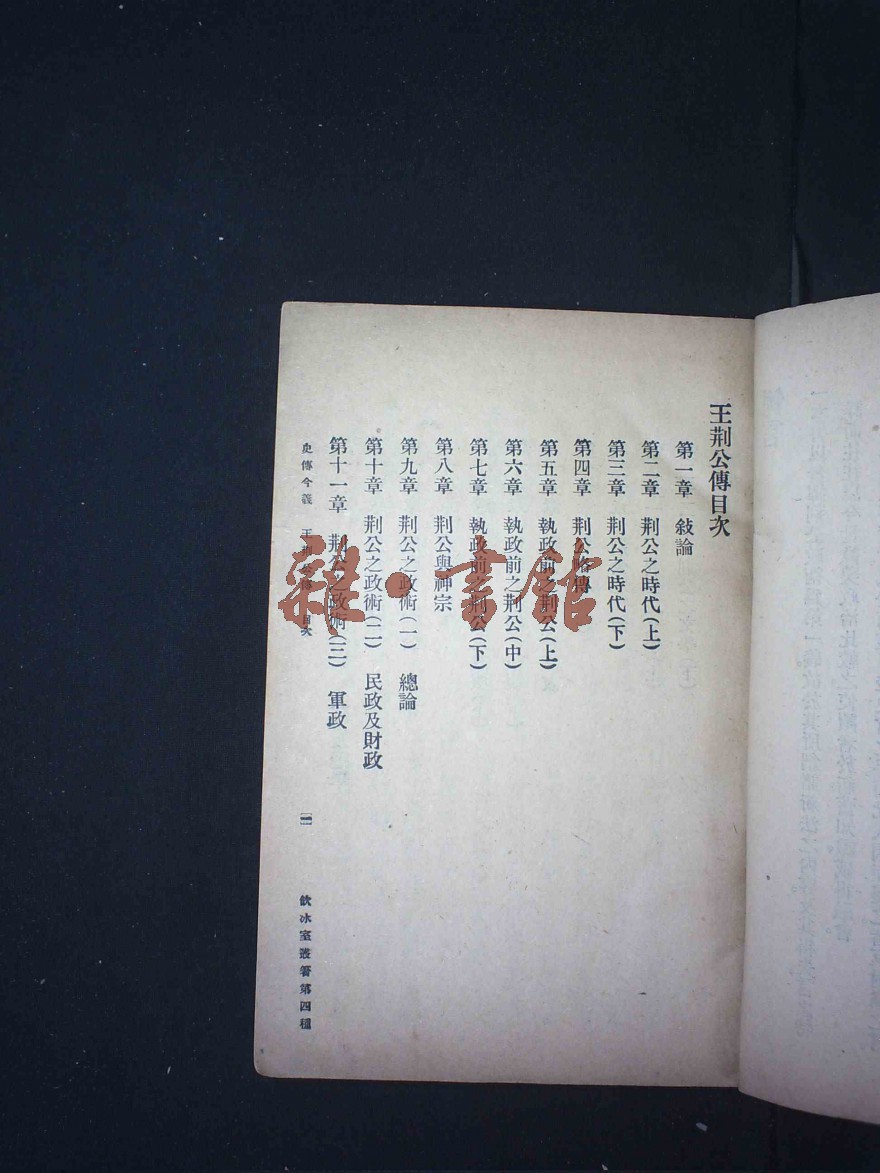 王荆公傳目次
第一章 敍論
第二章 荆公之時代(上)
第三章 荆公之時代(下)
第四章 荆公略傳
第五章 執政前之荆公(上)
第六章 執政前之荆公(中)
第七章 執政前之荆公(下)
第八章 荆公與神宗
第九章 荆公之政術(一) 總論
第十章 荆公之政術(二) 民政及財政
第十一章 荆公之政術(三) 軍政
史傳今義 王荆公傳 目次
一
飲冰室叢著第四種
雜·書館